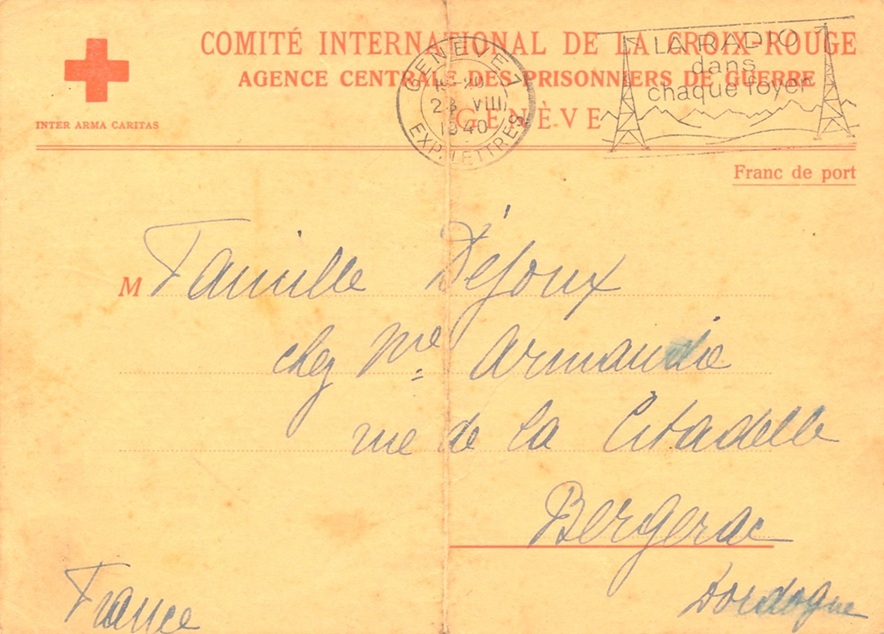 COMITÉ INTERNATIONAL DE LA CROIX-ROUGE
AGENCE CENTRALE DES PRISONNIERS DE GUERRE
GENÈVE
INTER ARMA CARITAS
GENÈVE 1
VIII
1940
EXP. LETTRES
LA RADIO
dans
chaque foyer
Franc de port
M Famille Déjoux
chez Me Armandie
rue de la Citadelle
Bergerac
Dordogne
France